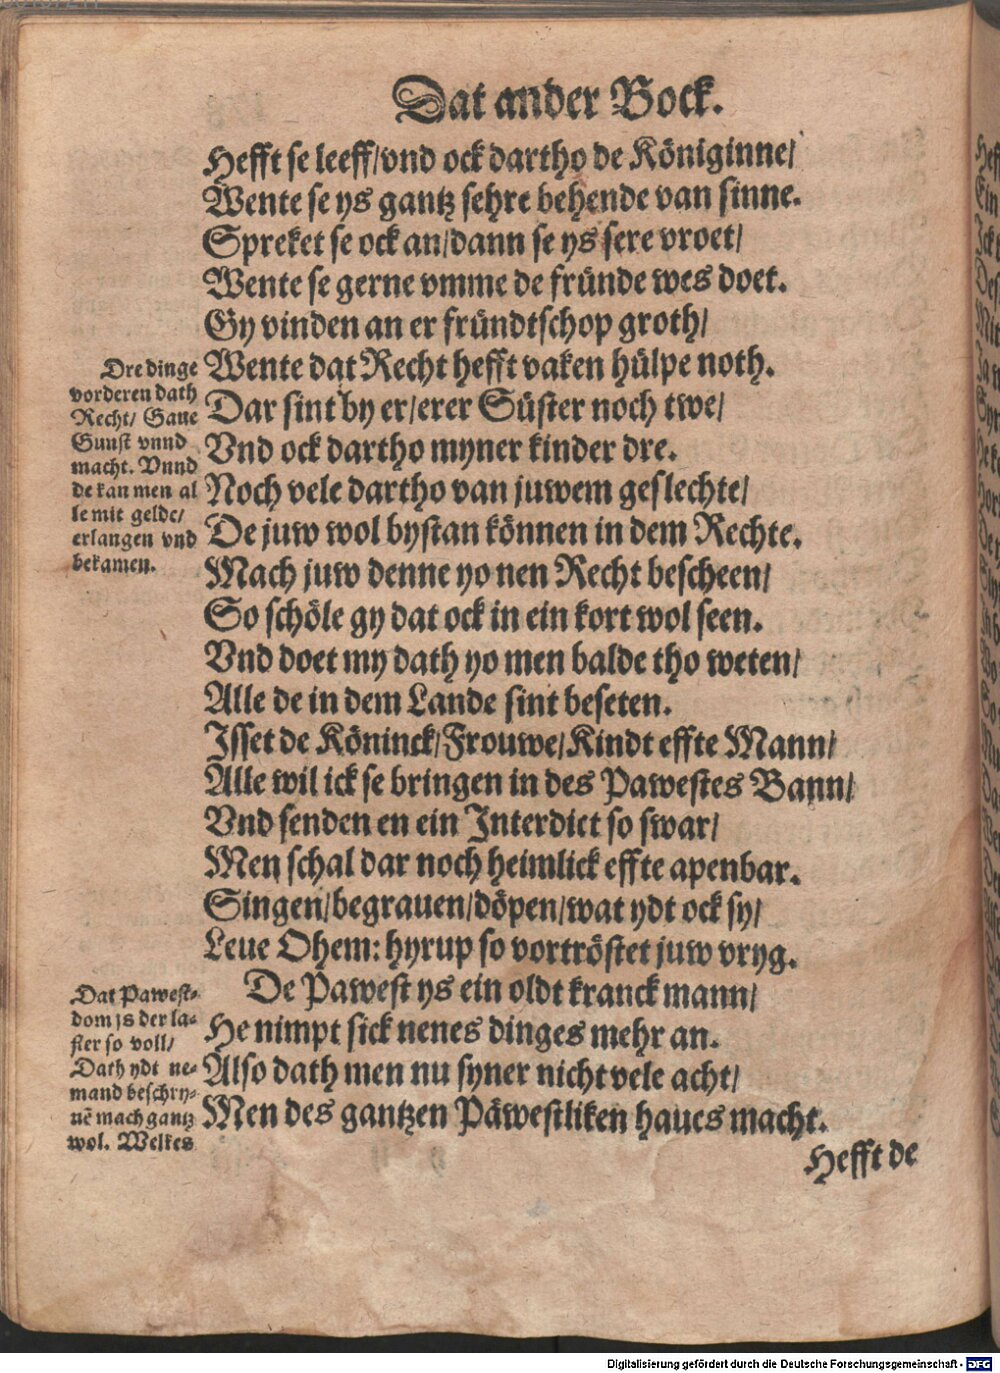 Dat ander Bock.
Hefft se leeff/vnd ock dartho de Königinne/
Wente se ys gantz sehre behende van sinne.
Spreket se ock an/dann se ys sere vroet/
Wente se gerne vmme de fründe wes doet.
Gy vinden an er fründtschop groth/
Wente dat Recht hefft vaken hülpe noth.
Dar sint by er/erer Süster noch twe/
Vnd ock dartho myner kinder dre.
Noch vele dartho van juwem geslechte/
De juw wol bystan können in dem Rechte.
Mach juw denne yo nen Recht bescheen/
So schöle gy dat ock in ein kort wol seen.
Vnd doet my dath yo men balde tho weten/
Alle de in dem Lande sint beseten.
Isset de Köninck/Frouwe/Kindt effte Mann/
Alle wil ick se bringen in des Pawestes Bann/
Vnd senden en ein Interdict so swar/
Men schal dar noch heimlick effte apenbar.
Singen/begrauen/döpen/wat ydt ock sy/
Leue Ohem: hyrup so vortröstet juw vryg.
De Pawest ys ein oldt kranck mann/
He nimpt sick nenes dinges mehr an.
Also dath men nu syner nicht vele acht/
Men des gantzen Päwestliken haues macht.
Hefft de
Dre dinge
vorderen dath
Recht/ Gaue
Gunst vnnd
macht. Vnnd
de kan men al
le mit gelde/
erlangen vnd
bekamen.
Dat Pawest-
dom js der la-
ster so voll/
Dath ydt ne-
mand beschry-
uē mach gantz
wol. Welkes
Digitalisierung gefördert durch die Deutsche Forschungsgemeinschaft - DFG